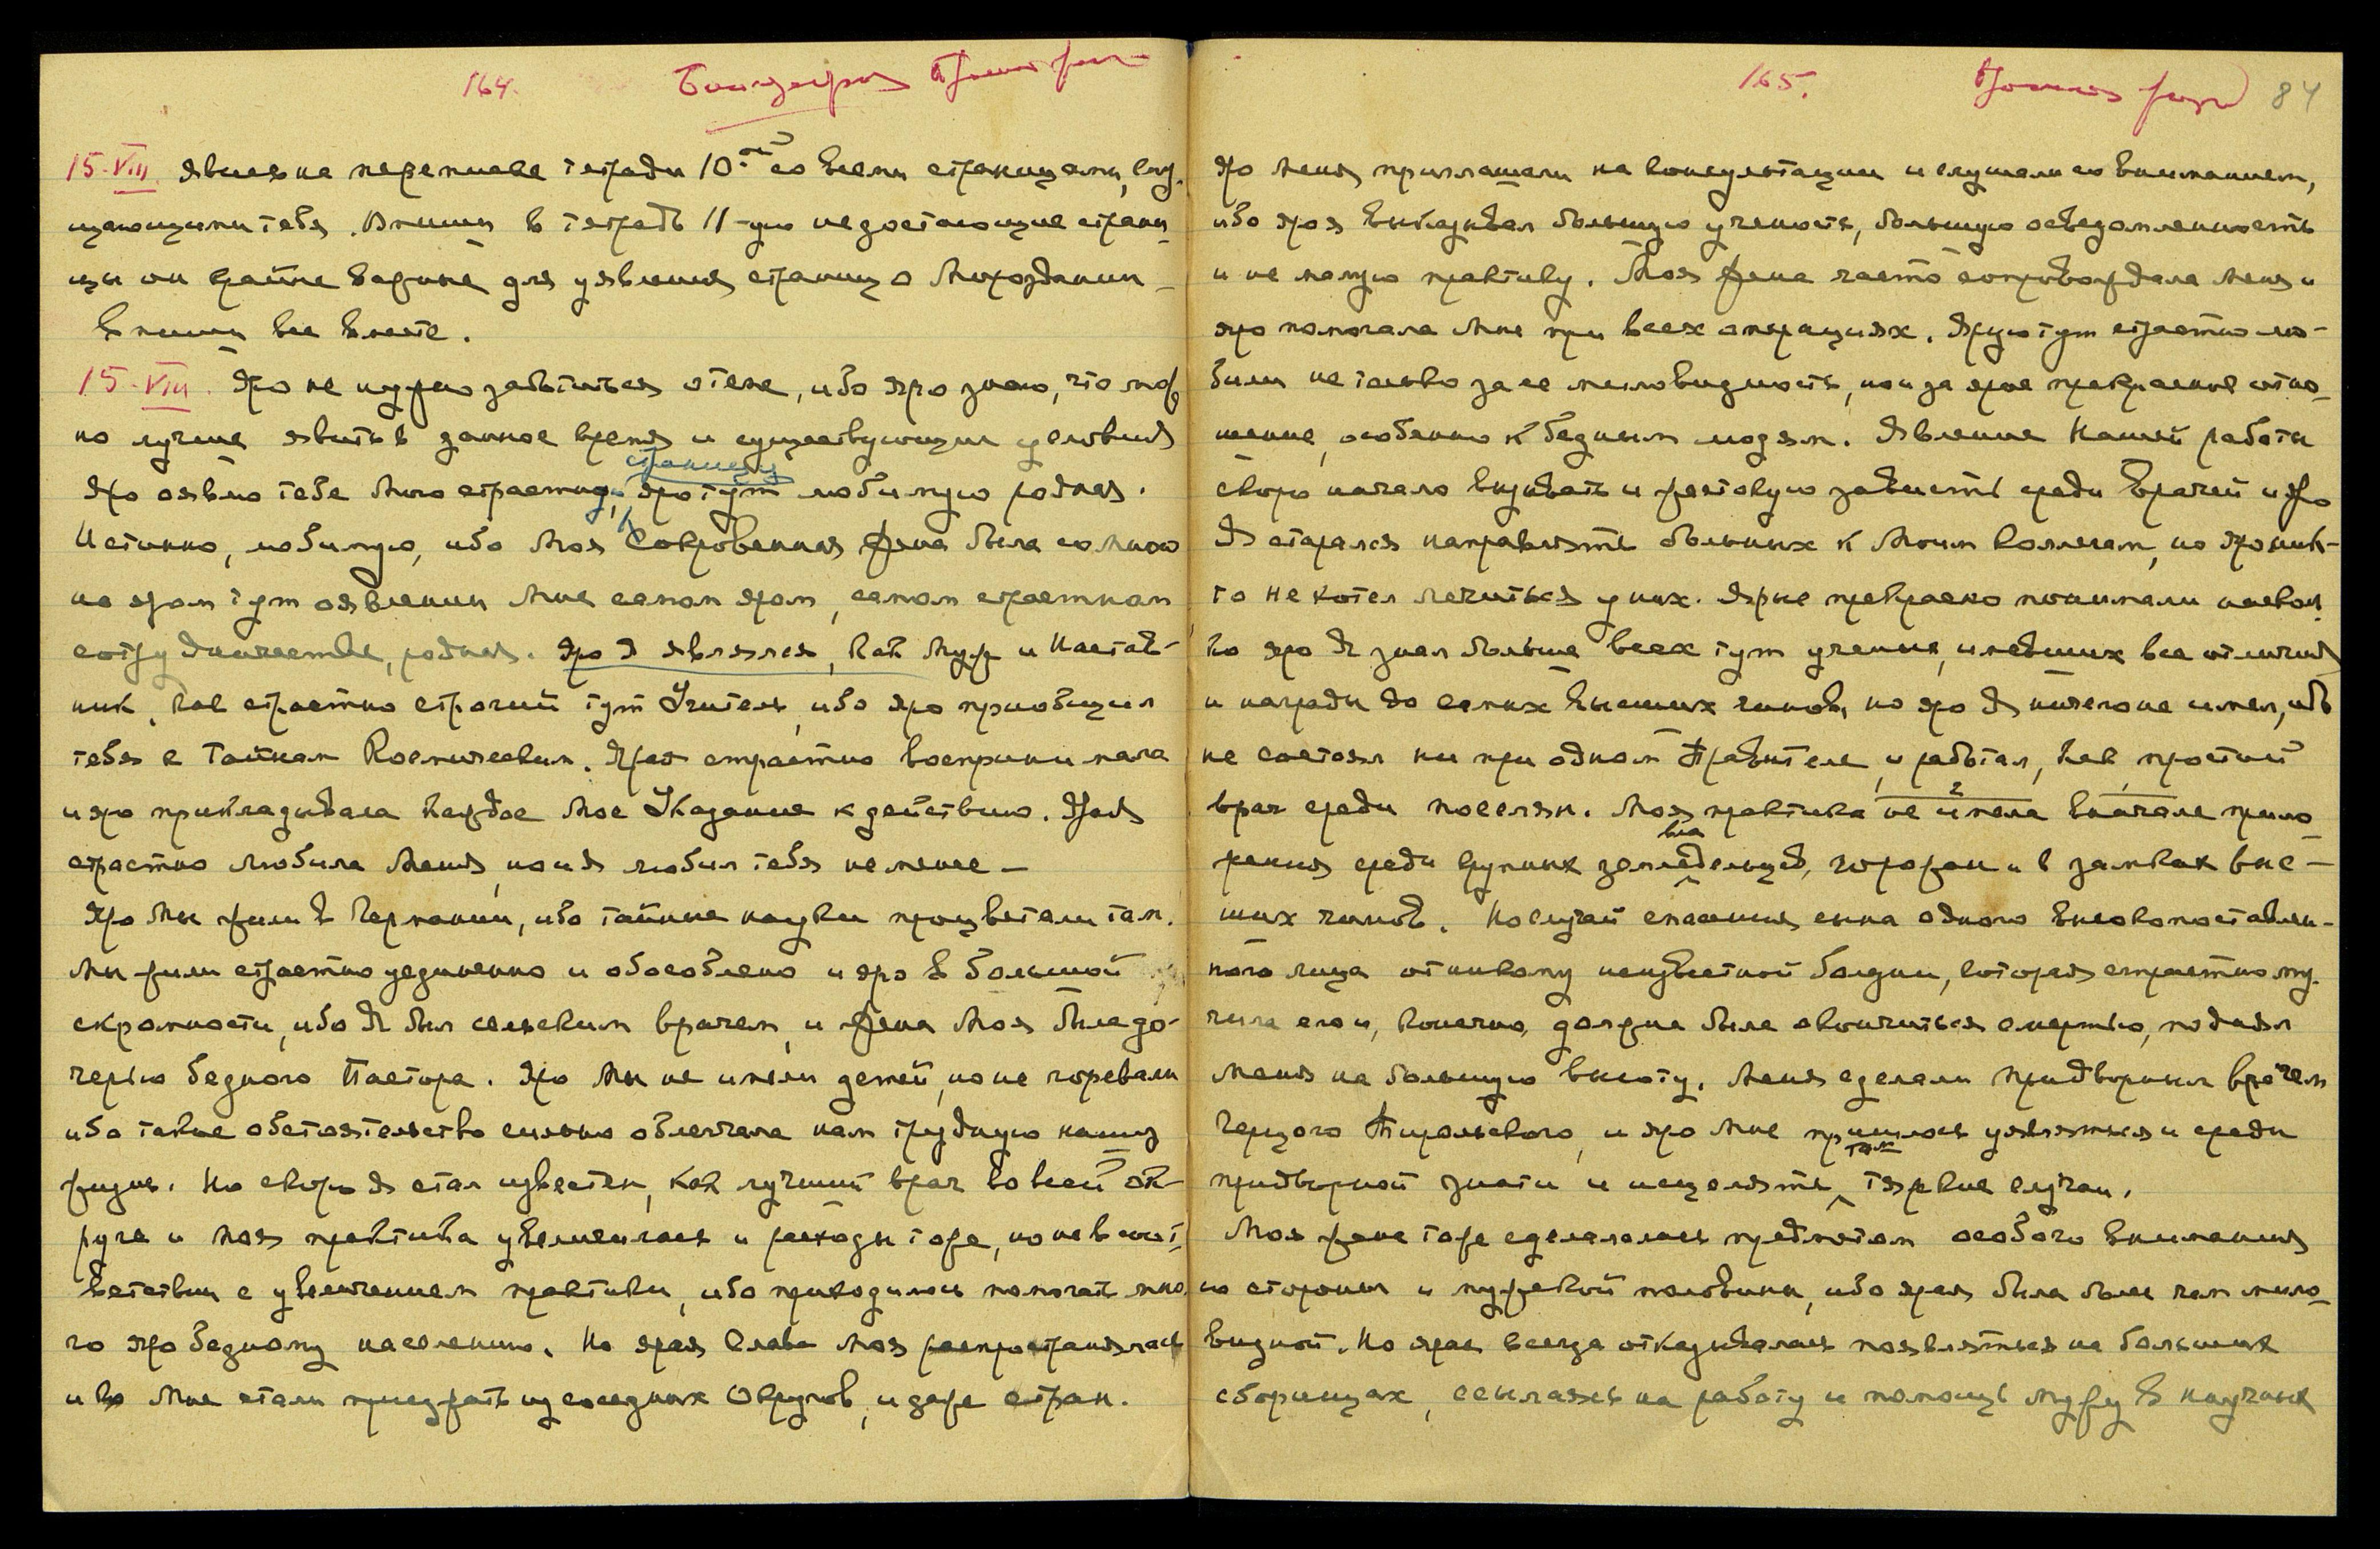 164.
15-VIII Явись на переписке тетради 10-ой со всеми страницами, ему-
щающими тебя. Впиши в тетрадь 11-ую недостающие страни-
цы они крайне важные для уявления страниц о Мироздании –
впиши все вместе.
15-VIII. Яро не нужно заботиться о теме, ибо яро знаю, что мож-
но лучше явить в данное время и существующих условиях
страницу
Яро оявлю тебе Мою страстную, яро тут любимую родная.
Истинно, любимую, ибо Моя Сокровенная Жена была со мною
на яром тут оявлении Мне самом яром, самом страстном
сотрудничестве, родная. Яро Я являлся, как Муж и Настав-
ник, как страстно строгий тут Учитель, ибо яро приобщил
тебя к Тайнам Космическим. Ярая страстно воспринимала
и яро прикладывала каждое Мое Указание к действию. Ярая
страстно любила Меня, но и Я любил тебя не менее –
Яро Мы жили в Германии, ибо тайные науки процветали там.
Мы жили страстно уединенно и обособлено и яро в большой
скромности, ибо Я был сельским врачем, и Жена Моя была до-
черью бедного Пастора. Яро Мы не имели детей, но не горевали
ибо такое обстоятельство сильно облегчала нам трудную нашу
жизнь. Но скоро Я стал известен, как лучший врач во всей ок-
руге и Моя практика увеличилась и расходы тоже, но не в соот-
ветствии с увеличением практики, ибо приходилось помогать мно-
го яро бедному населению. Но ярая Слава Моя распространялась
и ко Мне стали приезжать из соседних Округов, и даже стран.
165.
84
Яро Меня приглашали на консультации и слушали со вниманием,
ибо яро Я выказывал большую ученость, большую осведомленность
и не малую практику. Моя Жена часто сопровождала Меня и
яро помогала Мне при всех операциях. Ярую тут страстно лю-
били не только за ее миловидность, но и за ярое прекрасное отно-
шение, особенно к бедным людям. Явление Нашей работы
скоро начало вызывать и жестокую зависть среди Врачей и яро
Я старался направлять больных к Моим коллегам, но яро ник-
то не хотел лечиться у них. Ярые прекрасно понимали насколь-
ко яро Я знал больше всех тут ученых, имевших все отличия
и награды до самых высших чинов, но яро Я ничего не имел, ибо
не состоял ни при одном Правителе, и работал, как простой
врач среди поселян. Моя практика не имела вначале прило-
жения среди крупных землевладельцев, горожан и в замках выс-
ших чинов. Но случай спасения сына одного высокопоставлен-
ного лица от никому неизвестной болезни, которая страстно му-
чила его и, конечно, должна была окончиться смертью, поднял
Меня на большую высоту. Меня сделали Придворным врачем
Герцога Тирольского, и яро Мне пришлось уявляться и среди
там
придворной знати и исцелять тяжкие случаи.
Моя жена тоже сделалась предметом особого внимания
со стороны и мужской половины, ибо ярая была более чем мило-
видной. Но ярая всегда отказывалась появляться на больших
сборищах, ссылаясь на работу и помощь мужу в научных